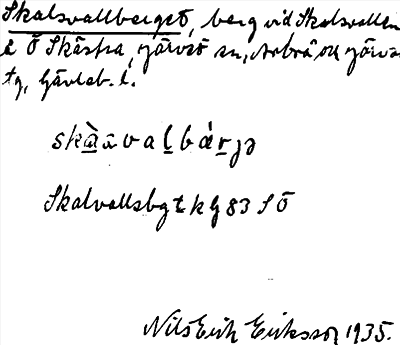 Skalsvallberget, berg vid Skalsvallen
i Ö Skästra, Järvsö sn, Arbrå och Järvsö
tg, Gävleb. l.
skàavalbárjə
Skalvallsbgt k g 83 S Ö
Nils Erik Eriksson 1935.